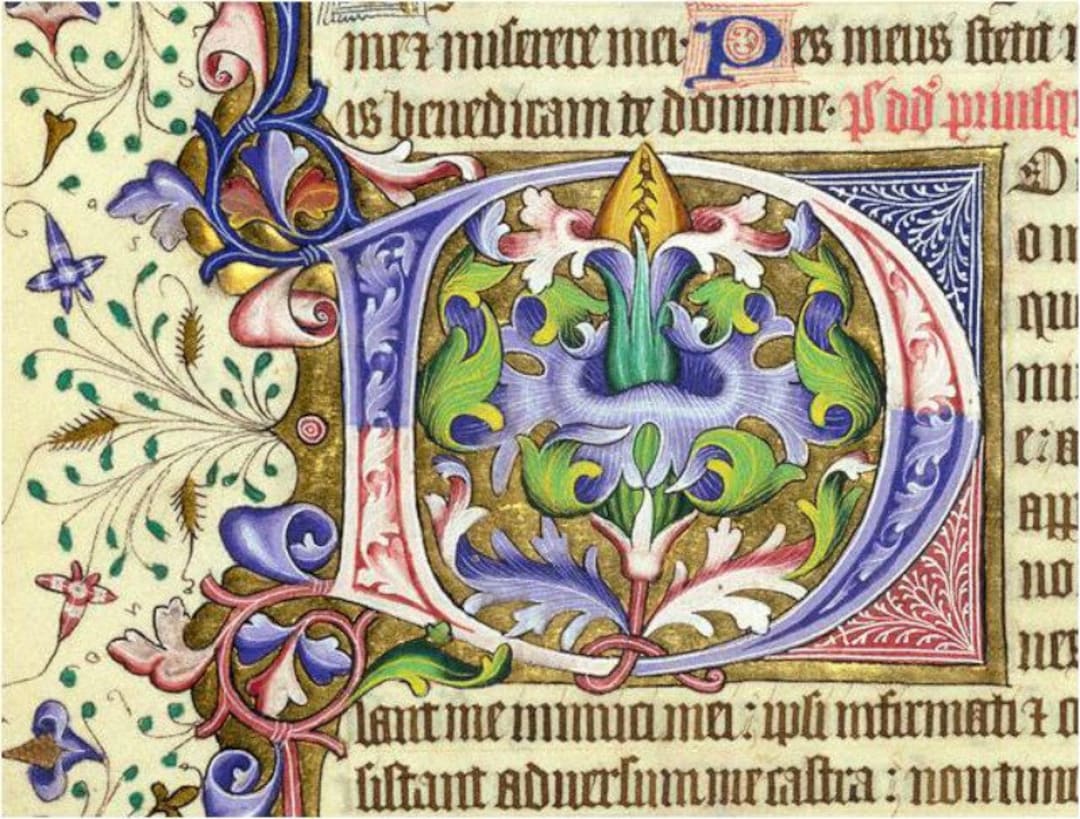 me ⁊ miserere mei · Pes meus stetit i
is benedicam te domine · ps dd priusq
D O
qu
mi
e: a
app
no
nes
lant me inimici mei : ipsi infirmati ⁊ c
sistant adversum me castra : non tim